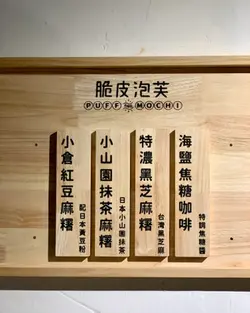 脆皮泡芙
PUFF MOCHI
海鹽焦糖咖啡
特調焦糖醬
特濃黑芝麻糬
台灣黑芝麻
小山園抹茶麻糬
日本小山園抹茶
小倉紅豆麻糬
配日本黃豆粉